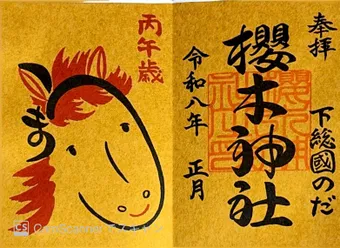 奉拝
下総國のだ
櫻木神社
令和八年 正月
丙午歳
CS CamScanner